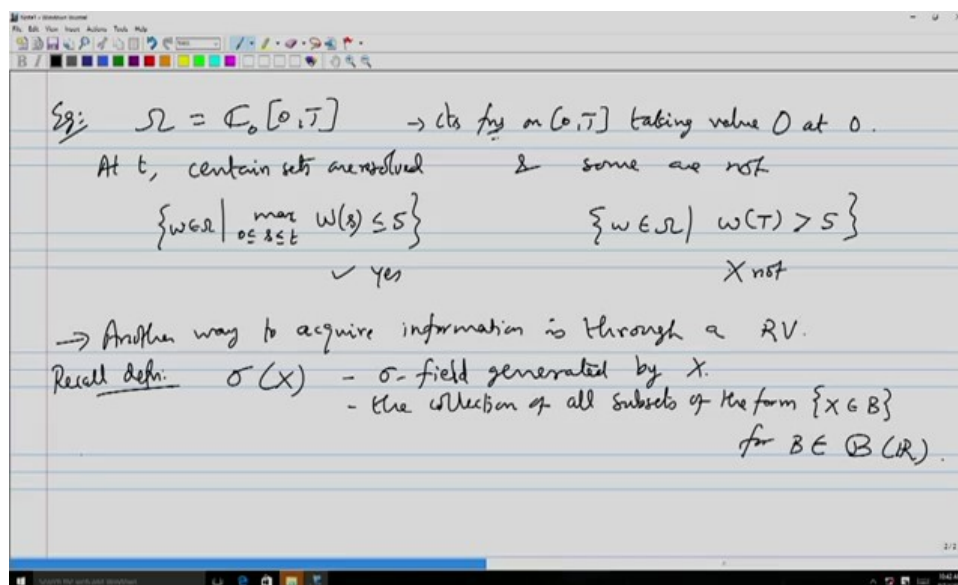 Eg: Ω = C₀[0,T] → cts fns on [0,T] taking value 0 at 0.
At t, certain sets are resolved & some are not
{ω∈Ω | max 0≤s≤t ω(s) ≤ 5} {ω∈Ω | ω(T) > 5}
✓ yes X not
→ Another way to acquire information is through a RV.
Recall defn: σ(X) - σ-field generated by X.
- the collection of all subsets of the form {X∈B}
for B∈ B(ℝ).
2/2